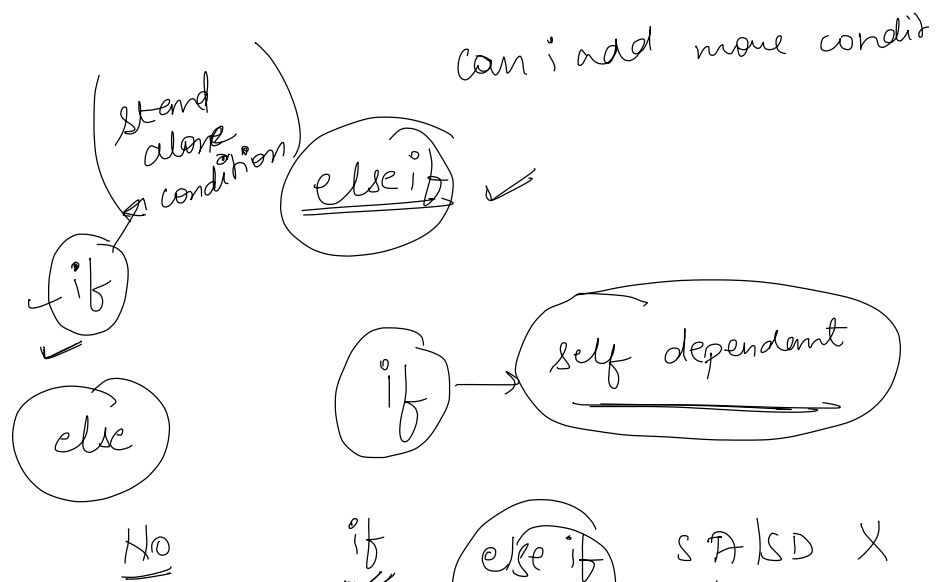 can i add more condit
stand
alone
condition
else if
if
self dependant
if
else
No
if
else if
SA/SD X